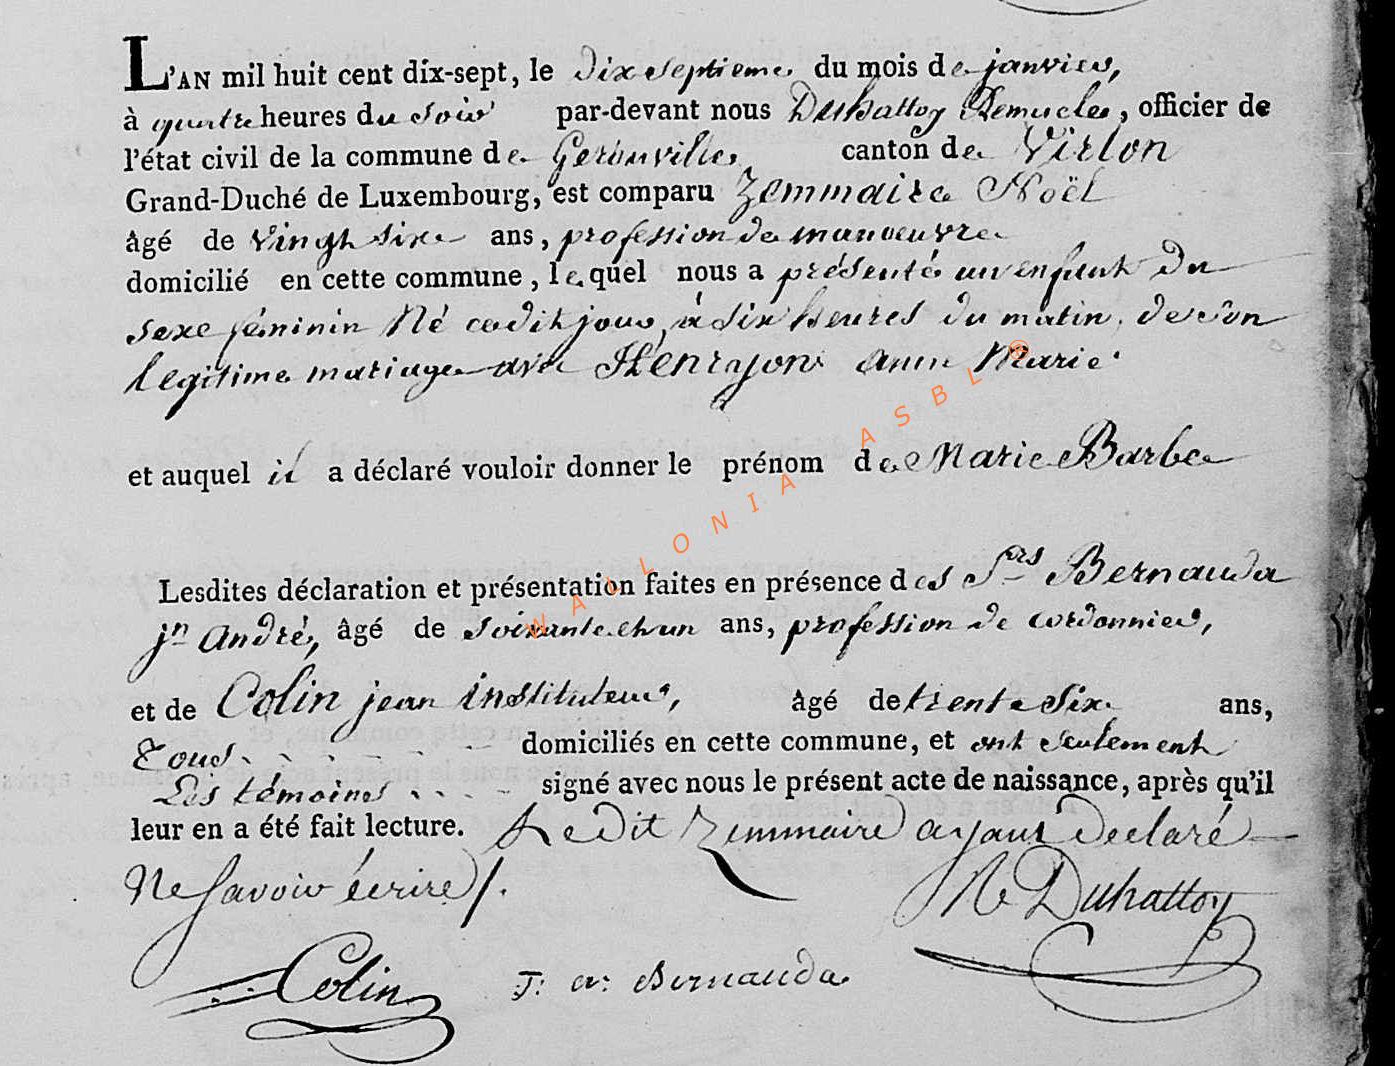 L'AN mil huit cent dix-sept, le dix septieme du mois de janvier,
à quatre heures du soir par-devant nous Duhattoy Remacle, officier de
l'état civil de la commune de Gerouville, canton de Virton
Grand-Duché de Luxembourg, est comparu Zemmaire Noël
âgé de vingh sixe ans, profession de manoeuvre
domicilié en cette commune, lequel nous a présenté un enfant du
sexe féminin Né cedit jour, à six heures du matin, de son
legitime mariage avec Henryon ann Marie
et auquel il a déclaré vouloir donner le prénom de Marie Barbe
Lesdites déclaration et présentation faites en présence des Srs Bernauda
jn andré, âgé de soixante et un ans, profession de cordonnier,
et de Colin jean instituteur, âgé de trente six ans,
Tous domiciliés en cette commune, et ont seulement
Les témoins signé avec nous le présent acte de naissance, après qu'il
leur en a été fait lecture. Ledit Zemmaire ayant declaré
Ne savoir écrire /.
R Duhattoy
Colin J: a: Bernauda
WALLONIA ASBL ®